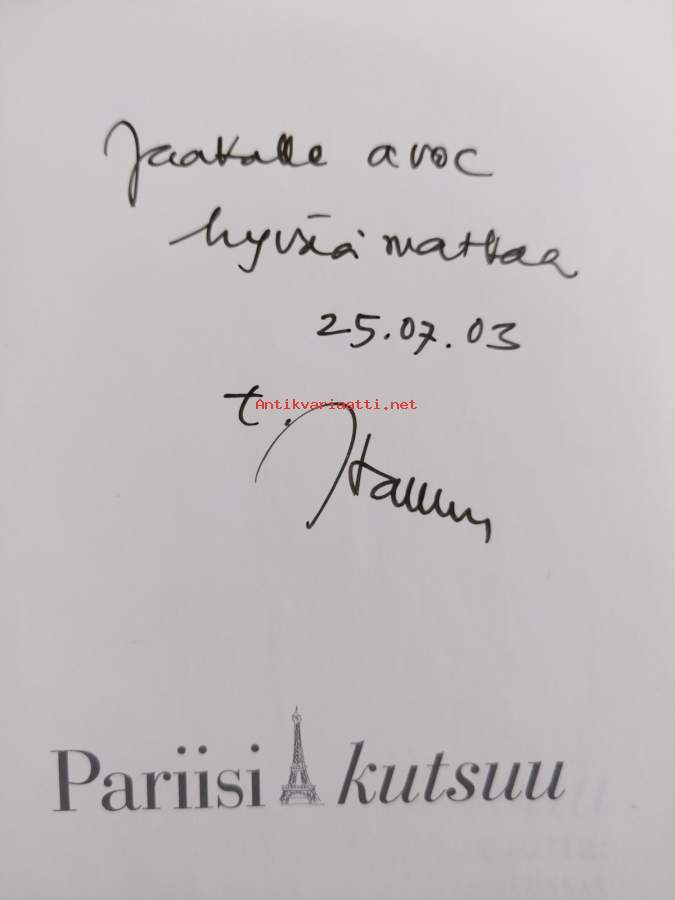 Jaakolle avoc
hyvää matkaa
25.07.03
t.
Antikvariaatti.net
Pariisi kutsuu